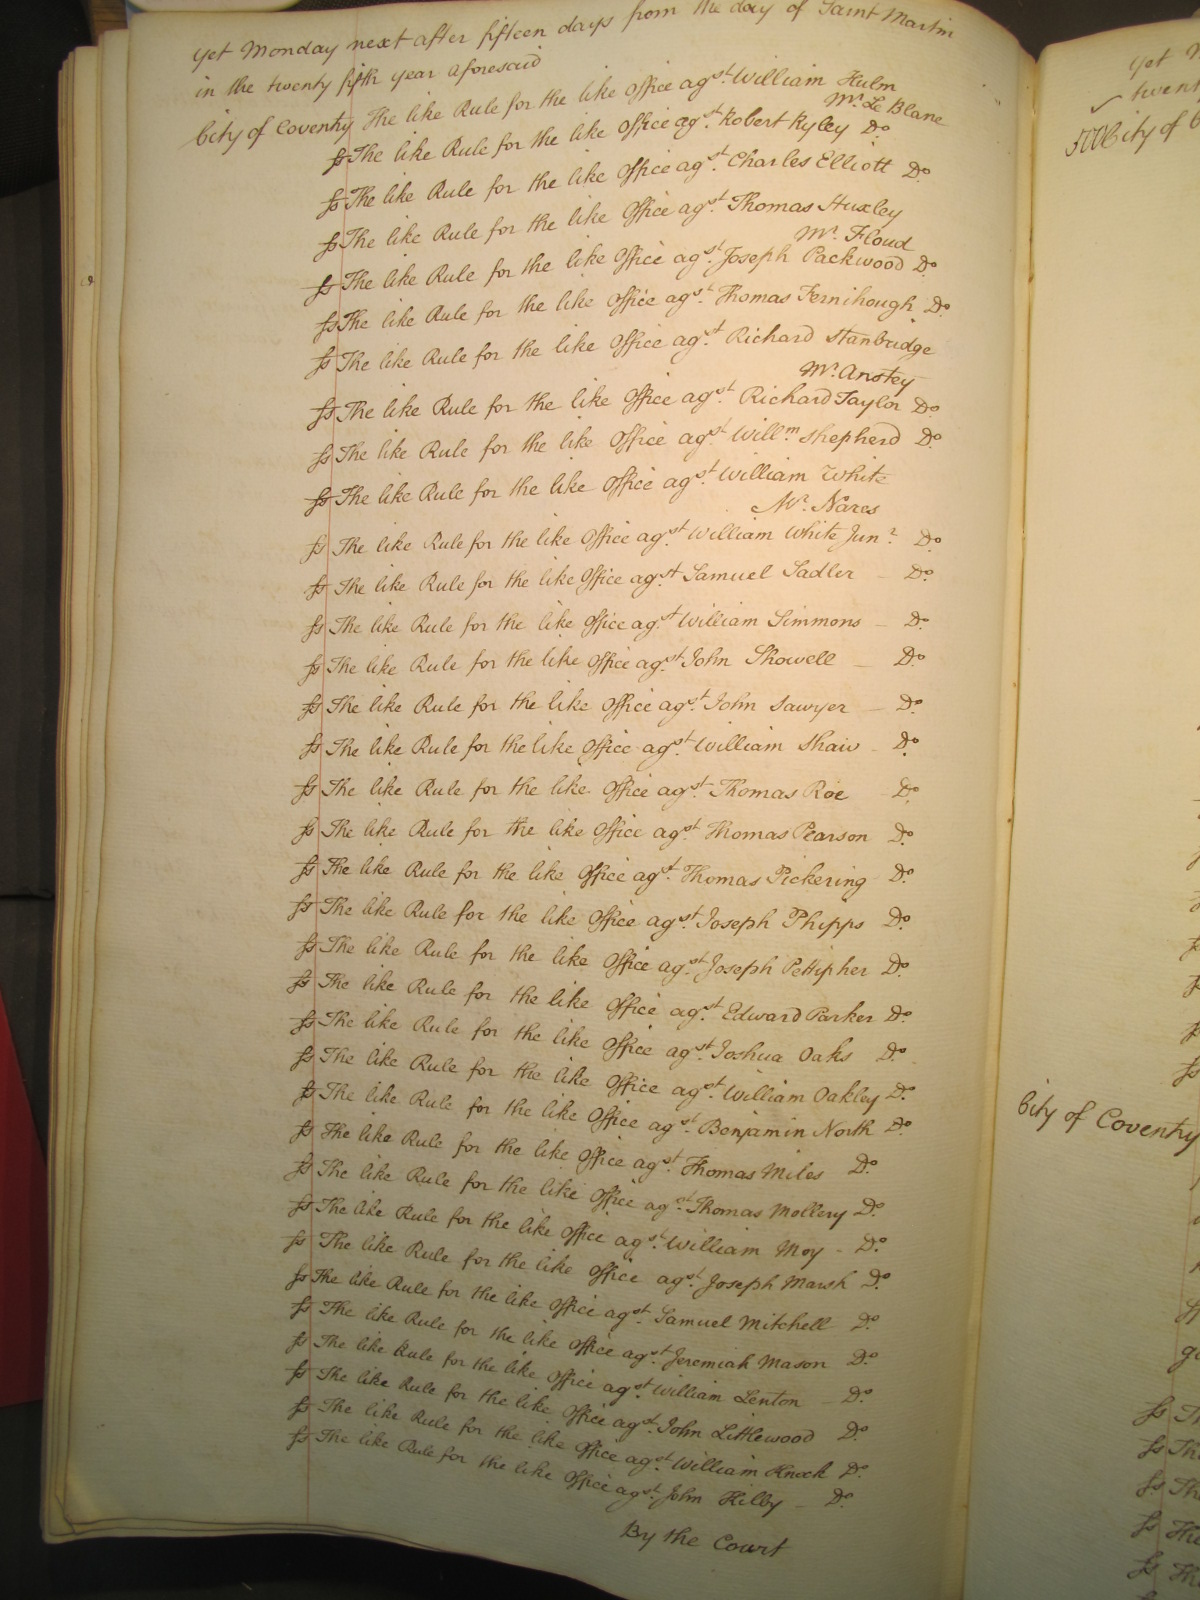 yet Monday next after fifteen days from the day of Saint Martin
in the twenty fifth year aforesaid
City of Coventry The like Rule for the like Office agst. William Hulm
Mr. Le Blanc
ss The like Rule for the like Office agst. Robert Ryley Do.
ss The like Rule for the like Office agst. Charles Elliott Do.
ss The like Rule for the like Office agst. Thomas Huxley
Mr. Floud
ss The like Rule for the like Office agst. Joseph Packwood Do.
ss The like Rule for the like Office agst. Thomas Fernihough Do.
ss The like Rule for the like Office agst. Richard Stanbridge
Mr. Anstey
ss The like Rule for the like Office agst. Richard Taylor Do.
ss The like Rule for the like Office agst. Willm. Shepherd Do.
ss The like Rule for the like Office agst. William White
Mr. Nares
ss The like Rule for the like Office agst. William White Junr. Do.
ss The like Rule for the like Office agst. Samuel Sadler – Do.
ss The like Rule for the like Office agst. William Simmons – Do.
ss The like Rule for the like Office agst. John Showell – Do.
ss The like Rule for the like Office agst. John Sawyer – Do.
ss The like Rule for the like Office agst. William Shaw – Do.
ss The like Rule for the like Office agst. Thomas Roe Do.
ss The like Rule for the like Office agst. Thomas Pearson Do.
ss The like Rule for the like Office agst. Thomas Pickering Do.
ss The like Rule for the like Office agst. Joseph Phipps Do.
ss The like Rule for the like Office agst. Joseph Pettipher Do.
ss The like Rule for the like Office agst. Edward Parker Do.
ss The like Rule for the like Office agst. Joshua Oaks Do.
ss The like Rule for the like Office agst. William Oakley Do.
ss The like Rule for the like Office agst. Benjamin North Do.
ss The like Rule for the like Office agst. Thomas Miles Do.
ss The like Rule for the like Office agst. Thomas Mollery Do.
ss The like Rule for the like Office agst. William Moy – Do.
ss The like Rule for the like Office agst. Joseph Marsh Do.
ss The like Rule for the like Office agst. Samuel Mitchell Do.
ss The like Rule for the like Office agst. Jeremiah Mason Do.
ss The like Rule for the like Office agst. William Lenton – Do.
ss The like Rule for the like Office agst. John Littlewood Do.
ss The like Rule for the like Office agst. William Knock Do.
ss The like Rule for the like Office agst. John Kilby – Do.
By the Court
yet
twent
City of C
City of Coventry